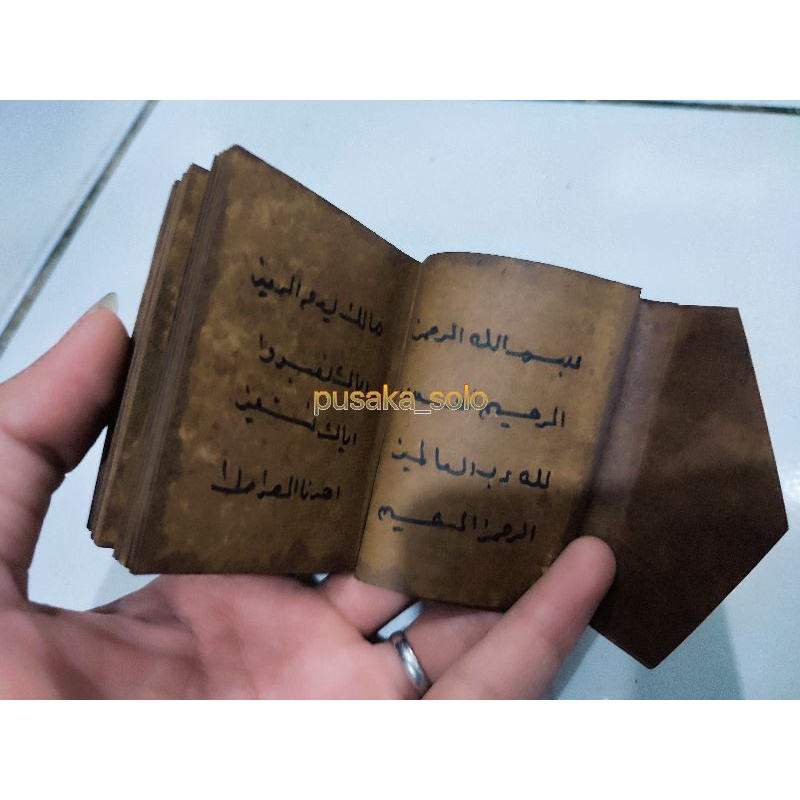 بسم الله الرحمن
الرحيم
لله رب العالمين
الرحمن الرحيم
مالك يوم الدين
اياك نعبدوا
اياك نستعين
اهدنا الصراط ا
pusaka_solo